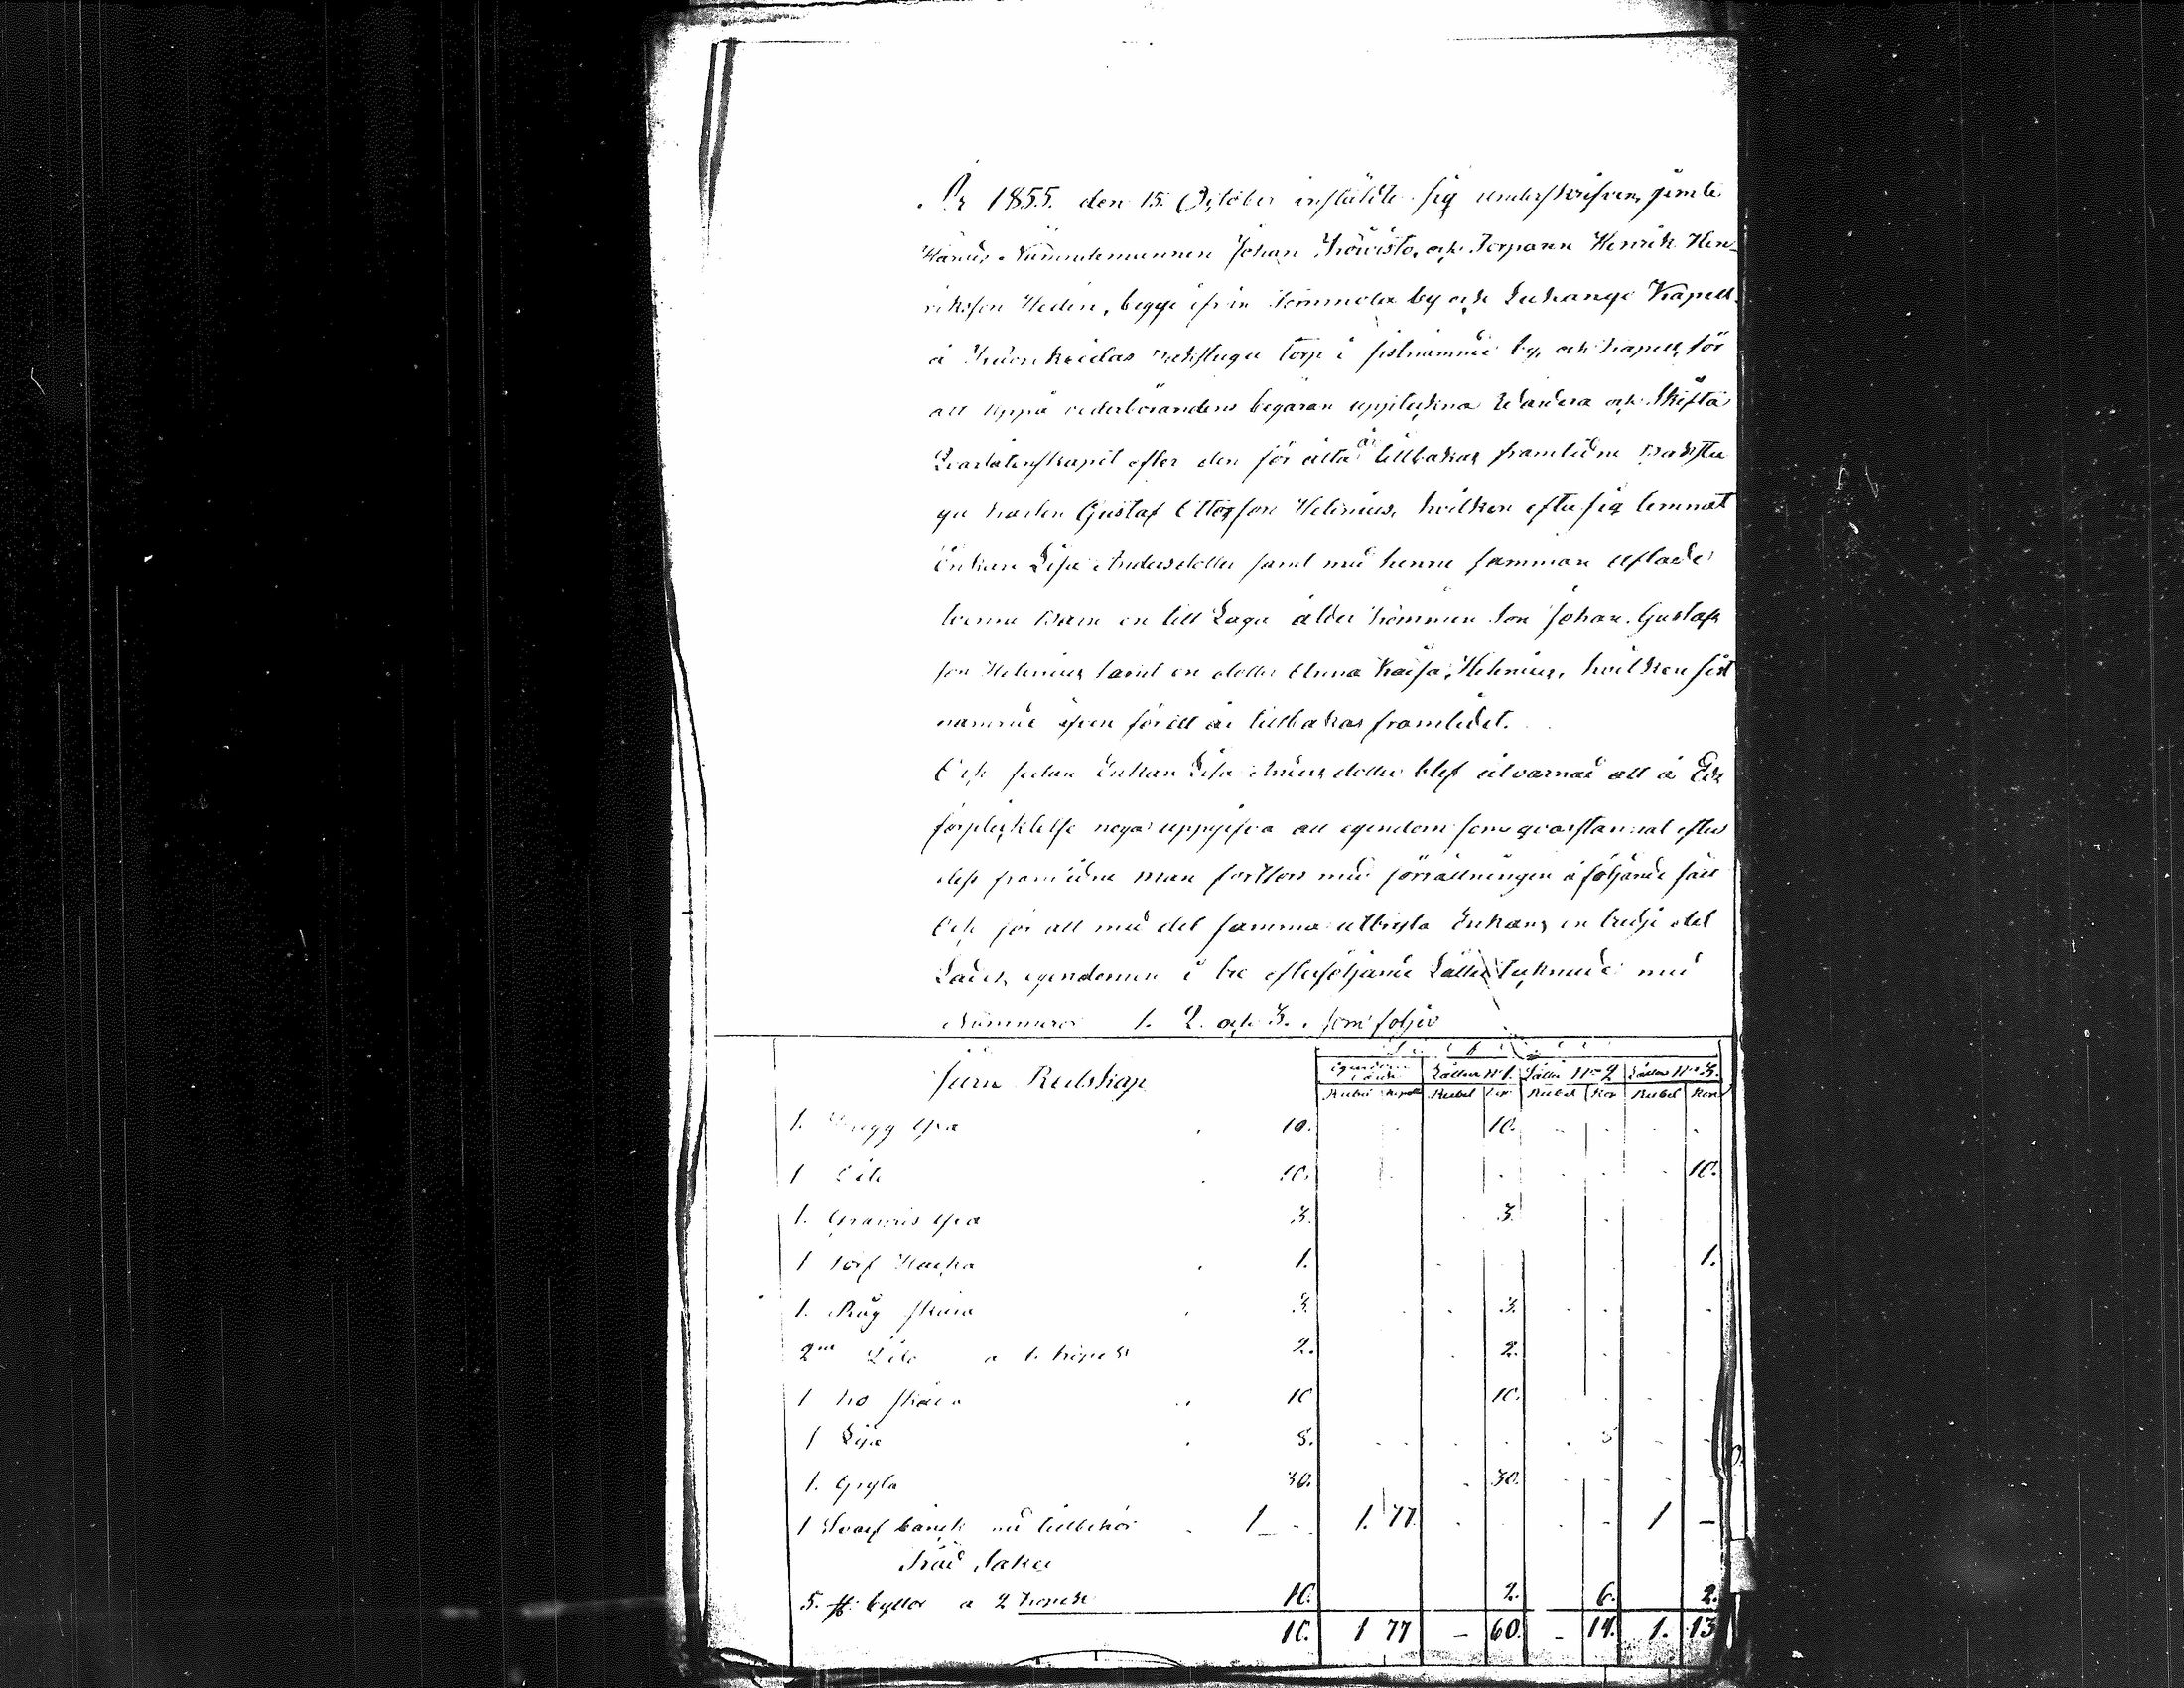 År 1855. den 15. October instälde sig underskrifven, jemte
Härads Nämndemannen Johan Koivisto, och Torparen Henrik Hen-
riksson Hedén, begge ifrån Tommola by och Luhango Kapell,
å backstugu torp i sistnämnde by och kapell, för
att uppå vederbörandens begäran uppteckna Värdera och Skifta
Qvarlåtenskapet efter den för åtta år tillbakas framledne Backstu
gu karlen Gustaf Ottosson Helenius, hvilken efter sig lemnat
Enkan Lisa Andersdotter samt med henne samman aflade
tvenne Barn en till Laga ålder kommen son Johan Gustafs
son Helenius samt en dotter Anna Kaisa Helenius, hvilken sist
nämnde äfven för ett år tillbakas framledet.
Och sedan Enkan Lisa Andersdotter blef åtvarnad att å Eds
förpligtelse noga uppgifva all egendom som qvarstannat efter
dess framledne man fortfors med förrättningen å följande sätt
Och för att med det samma utbryta Enkans en tredje del
Lades egendomen i tre efterföljande Lotter tecknade med
Nummeror 1. 2. och 3. som följer
Jern Redskap
Rubel Kopek Rubel Kop Rubel Kop Rubel Kop
1. Hugg Yxa 10. 10.
1 Dito 10. 10.
1. Gramis Yxa 3. 3.
1 Torf Hacka 1. 1.
1. Råg skära 3. 3.
2ne Dito a 1. kopek 2. 2.
1 10 10.
1 Lija 5. 5
1. Gryta 30. 30.
1 Svarf bänck med tillbehör 1 - 1. 77. 1 -
Träd Saker
5. st: byttor a 2 kopek 10. 2. 6. 2.
10. 1 77 - 60. - 14. 1. 13